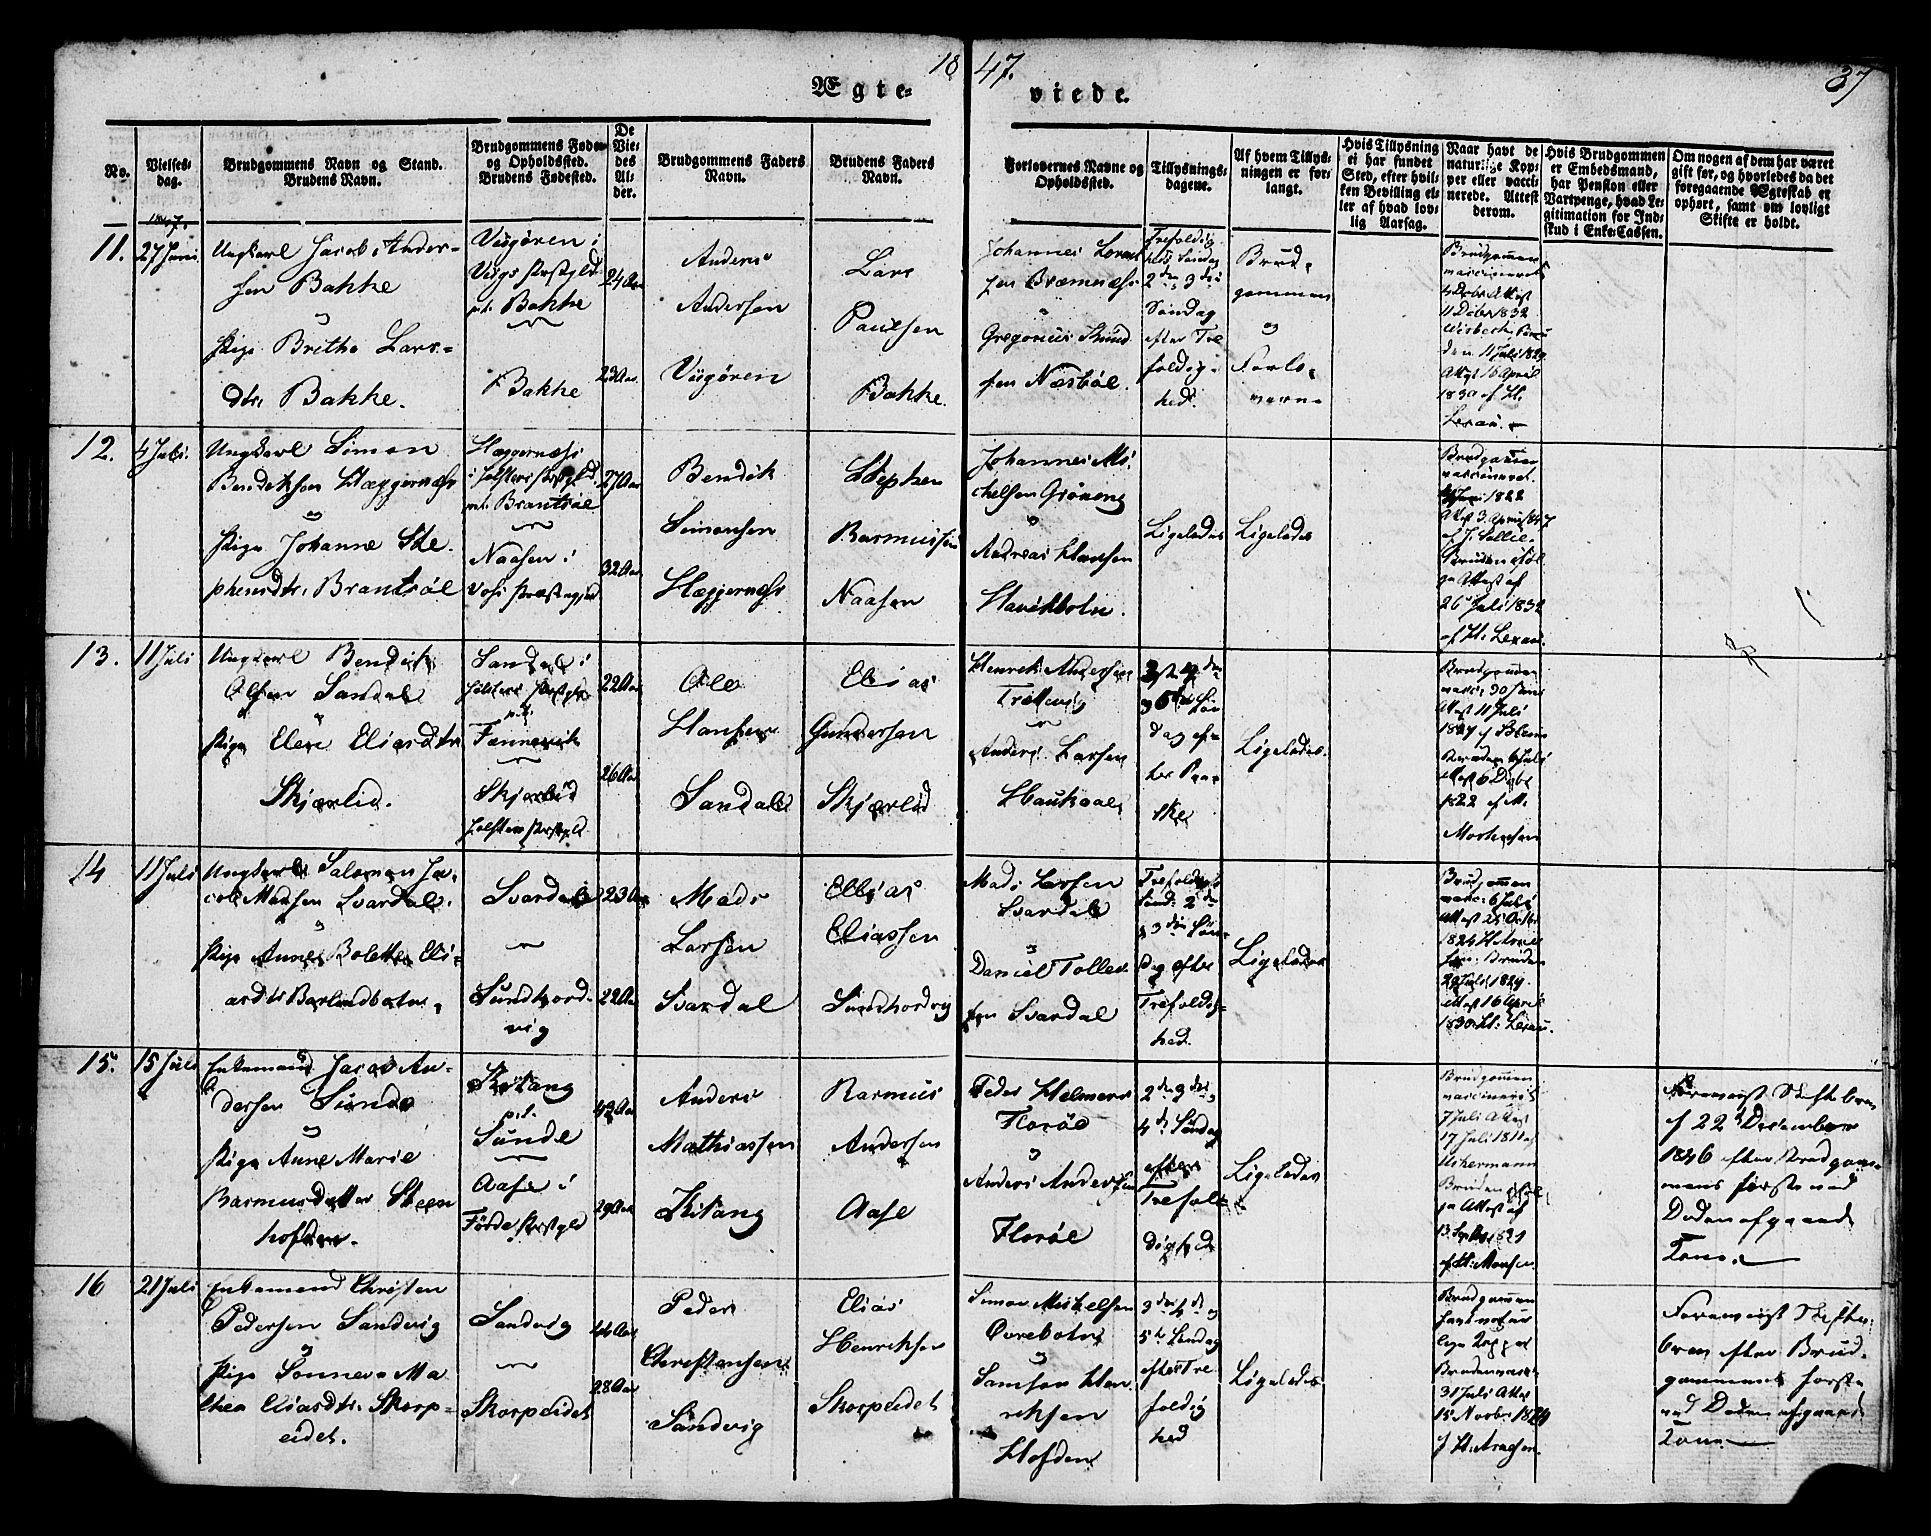 18 47. 37
Ægte- viede.
No.
Vielses-
dag.
Brudgommens Navn og Stand.
Brudens Navn.
Brudgommens Føde-
og Opholdssted.
Brudens Fødested.
De
Vie-
des
Al-
der.
Brudgommens Faders
Navn.
Brudens Faders
Navn.
Forlovernes Navne og
Opholdssted.
Tillysnings-
dagene.
Af hvem Tillys-
ningen er for-
langt.
Hvis Tillysning
ei har fundet
Sted, efter hvil-
ken Bevilling el-
ler af hvad lov-
lig Aarsag.
Naar havt de
naturlige Kop-
per eller vacci-
nerede. Attest
derom.
Hvis Brudgommen
er Embedsmand,
har Pension eller
Vartpenge, hvad Le-
gitimation for Ind-
skud i Enke-Cassen.
Om nogen af dem har været
gift før, og hvorledes da det
foregaaende Ægteskab er
ophørt, samt om lovligt
Skifte er holdt.
1847.
11.
27 Juni
Ungkarl Jacob Ander-
sen Bakke
og
Pige Brithe Lars-
dtr. Bakke.
Viigøren i
Viigs Præstgld
p.t. Bakke
Bakke
24 Aar
23 Aar
Anders
Andersen
Viigøren
Lars
Paulsen
Bakke
Johannes Lorent-
sen Bræmnæs
og
Gregorius Knud-
sen Næsbøe.
Trefoldig-
heds Søndag
2den 3die
Søndag
efter Tre
foldig-
hed.
Brud-
gommen
og
Forlo-
verne
Brudgommen
vaccineret
4 Debr Attest
11 Debr 1832
den 11 Juli 1829
Attest 16 April
1830 af H.
Lexau.
12.
4 Juli.
Ungkarl Simen
Bendiksen Hæggernæs
og
Pige Johanne Ste-
phensdtr. Brantsøe
Hæggernæs
i Jølsters Præstgld
p.t. Brantsøe
Naasen i
Vos Præstegjeld
27 Aar
32 Aar
Bendik
Simensen
Hæggernæs
Stephen
Rasmussen
Naasen
Johannes Mi-
chelsen Grøneng
og
Andreas Hansen
Havikbotn.
Ligeledes
Ligeledes
Brudgommen
vaccineret
1822
Attest 3 April 1847
Bruden iføl-
ge Attest af
26 Juli 1832
af H. Lexau.
13.
11 Juli
Ungkarl Bendik
Olsen Sandal
og
Pige Elen Eliasdtr
Skjærlid.
Sandal i
Jølsters Præstgld
p.t.
Fannevik
Skjærlid
Jølsters Præstgld
22 Aar
26 Aar
Ole
Hansen
Sandal
Elias
Gundersen
Skjærlid
Henrik Andersen
Anders Larsen
Haukaas
Søn
dag ef-
ter Paa-
ske
Ligeledes.
Brudgommen
vacc: 30 Juni
Attest 11 Juli
1827
Bruden
Attest 6 Debr
1822 af M.
Mortensen
14
11 Juli
Ungkarl Salomon Ja-
cob Madsen Svardal
og
Pige Anne Bolette Eli-
asdtr Barlindbotn.
Svardal
Sundhord-
vig
23 Aar
22 Aar
Mads
Larsen
Svardal
Ellias
Eliassen
Sundhordvig
Mads Larsen
Svardal
og
Daniel Tolle-
sen Svardal
Trefoldigh.
Sønd: 2den
3die Søn-
dag efter
Trefoldig-
hed.
Ligeledes
Brudgommen
vacc: 6 Juli
Attest 25 Octbr
Bruden
29 Juli 1829.
Attest 16 April
1830 H. Lexau.
15.
15 Juli
Enkemand Jacob An-
dersen Sunde
og
Pige Anne Marie
Rasmusdatter Steen
hofden.
Kitang
p.t.
Sunde
Aase i
Førde Præstgld
29 Aar
Anders
Mathiassen
Kitang
Rasmus
Andersen
Aase
Peder Helmers
Florøe
og
Anders Andersen
Florøe
2den 3die
4de Søndag
efter
Trefol-
dighed
Ligeledes
Brudgommen
vaccineret
7 Juli Attest
17 Juli 1811 af
Ukermann
Bruden iføl-
ge Attest af
af H. Monsen.
Foreviist Skiftebrev
af 22de December
1846 efter Brudgom-
mens første ved
Døden afgaaede
Kone.
16
21 Juli
Enkemand Christen
Pedersen Sandvig
og
Pige Sønneva Ma
thea Eliasdtr. Skorp-
eidet.
Sandvig
Skorpeidet
28 Aar
Peder
Christensen
Sandvig
Elias
Henriksen
Skorpeidet
Simon Mikelsen
Øvrebotn
og
Samson Hen-
riksen
Hofden
3die 4de og
5te Søndag
efter Tre-
foldig
hed
Ligeledes
Brudgommen
havt natur
lige Kopper
Bruden vacc:
31 Juli Attest
15 Novbr 1829
Foreviist Skifte-
brev efter Brud-
gommens første
ved Døden afgaaede
Kone